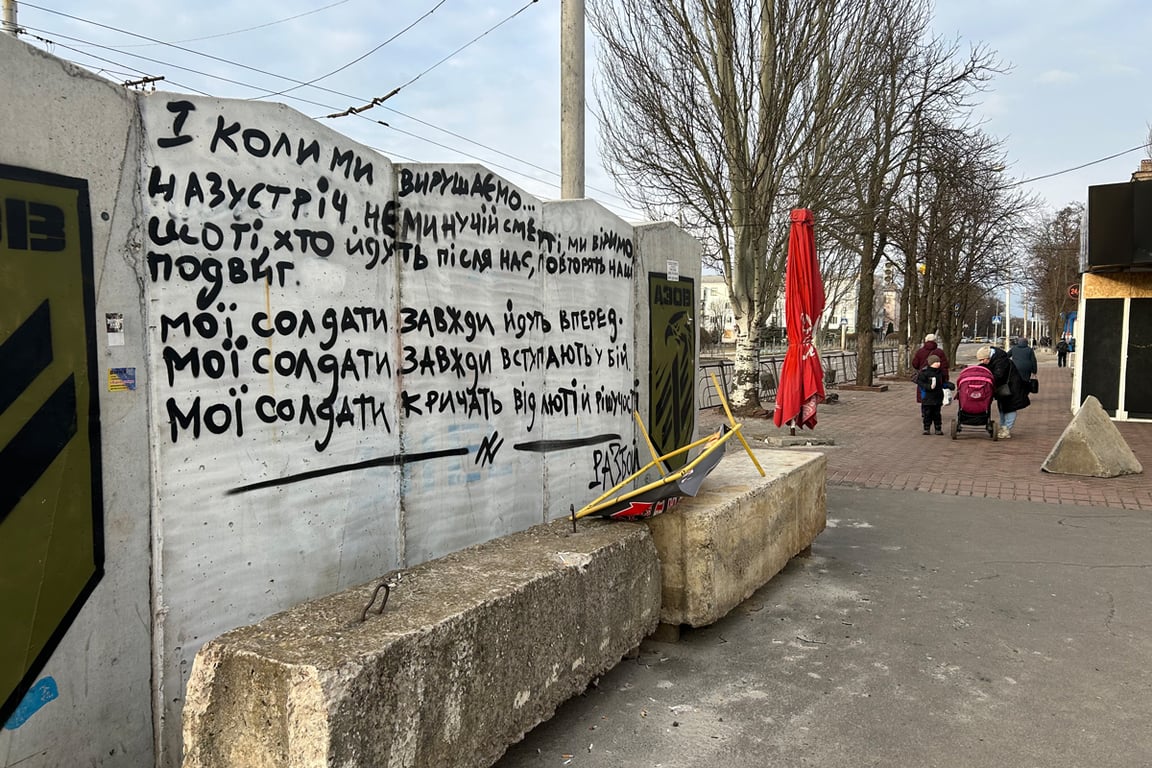 ОВ
І КОЛИ МИ ВИРУШАЄМО...
НАЗУСТРІЧ НЕМИНУЧІЙ СМЕРТІ, МИ ВІРИМО
ЩО ТІ, ХТО ЙДУТЬ ПІСЛЯ НАС, ПОВТОРЯТЬ НАШ
ПОДВИГ.
МОЇ СОЛДАТИ ЗАВЖДИ ЙДУТЬ ВПЕРЕД.
МОЇ СОЛДАТИ ЗАВЖДИ ВСТУПАЮТЬ У БІЙ.
МОЇ СОЛДАТИ КРИЧАТЬ ВІД ЛЮТІ Й РІШУЧОСТІ
РАЗБОЙ
АЗОВ